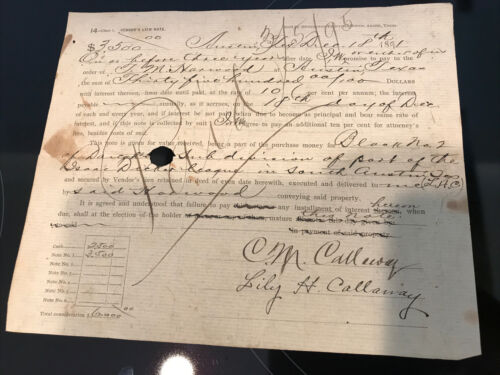 14—Class 1. VENDOR'S LIEN NOTE.
$3,500.00 Austin, Tex Dec. 18th 1891
On or before three years after date promise to pay to the
order of M Harwood Austin, Texas
the sum of Thirty five hundred 00/100 DOLLARS
with interest thereon, from date until paid, at the rate of 10 per cent per annum; the interest
payable annually, as it accrues, on the 18th day of Dec
of each and every year, and if interest be not paid when due to become as principal and bear same rate of
interest, and if this note be collected by suit agree to pay an additional ten per cent for attorney's
fees, besides costs of suit.
This note is given for value received, being a part of the purchase money for Block No. 2
of Subdivision of part of the
Isaac Decker league in South Austin, Tex
and secured by Vendor's lien retained in deed of even date herewith, executed and delivered to me (L.H.C)
by said Harwood conveying said property.
It is agreed and understood that failure to pay any installment of interest hereon, when
due, shall at the election of the holder mature this note
in payment of said property
Cash 2500
Note No. 1 3500
Note No. 2
Note No. 3
Note No. 4
Note No. 5
Note No. 6
Total consideration $
C. M. Callaway
Lily H. Callaway